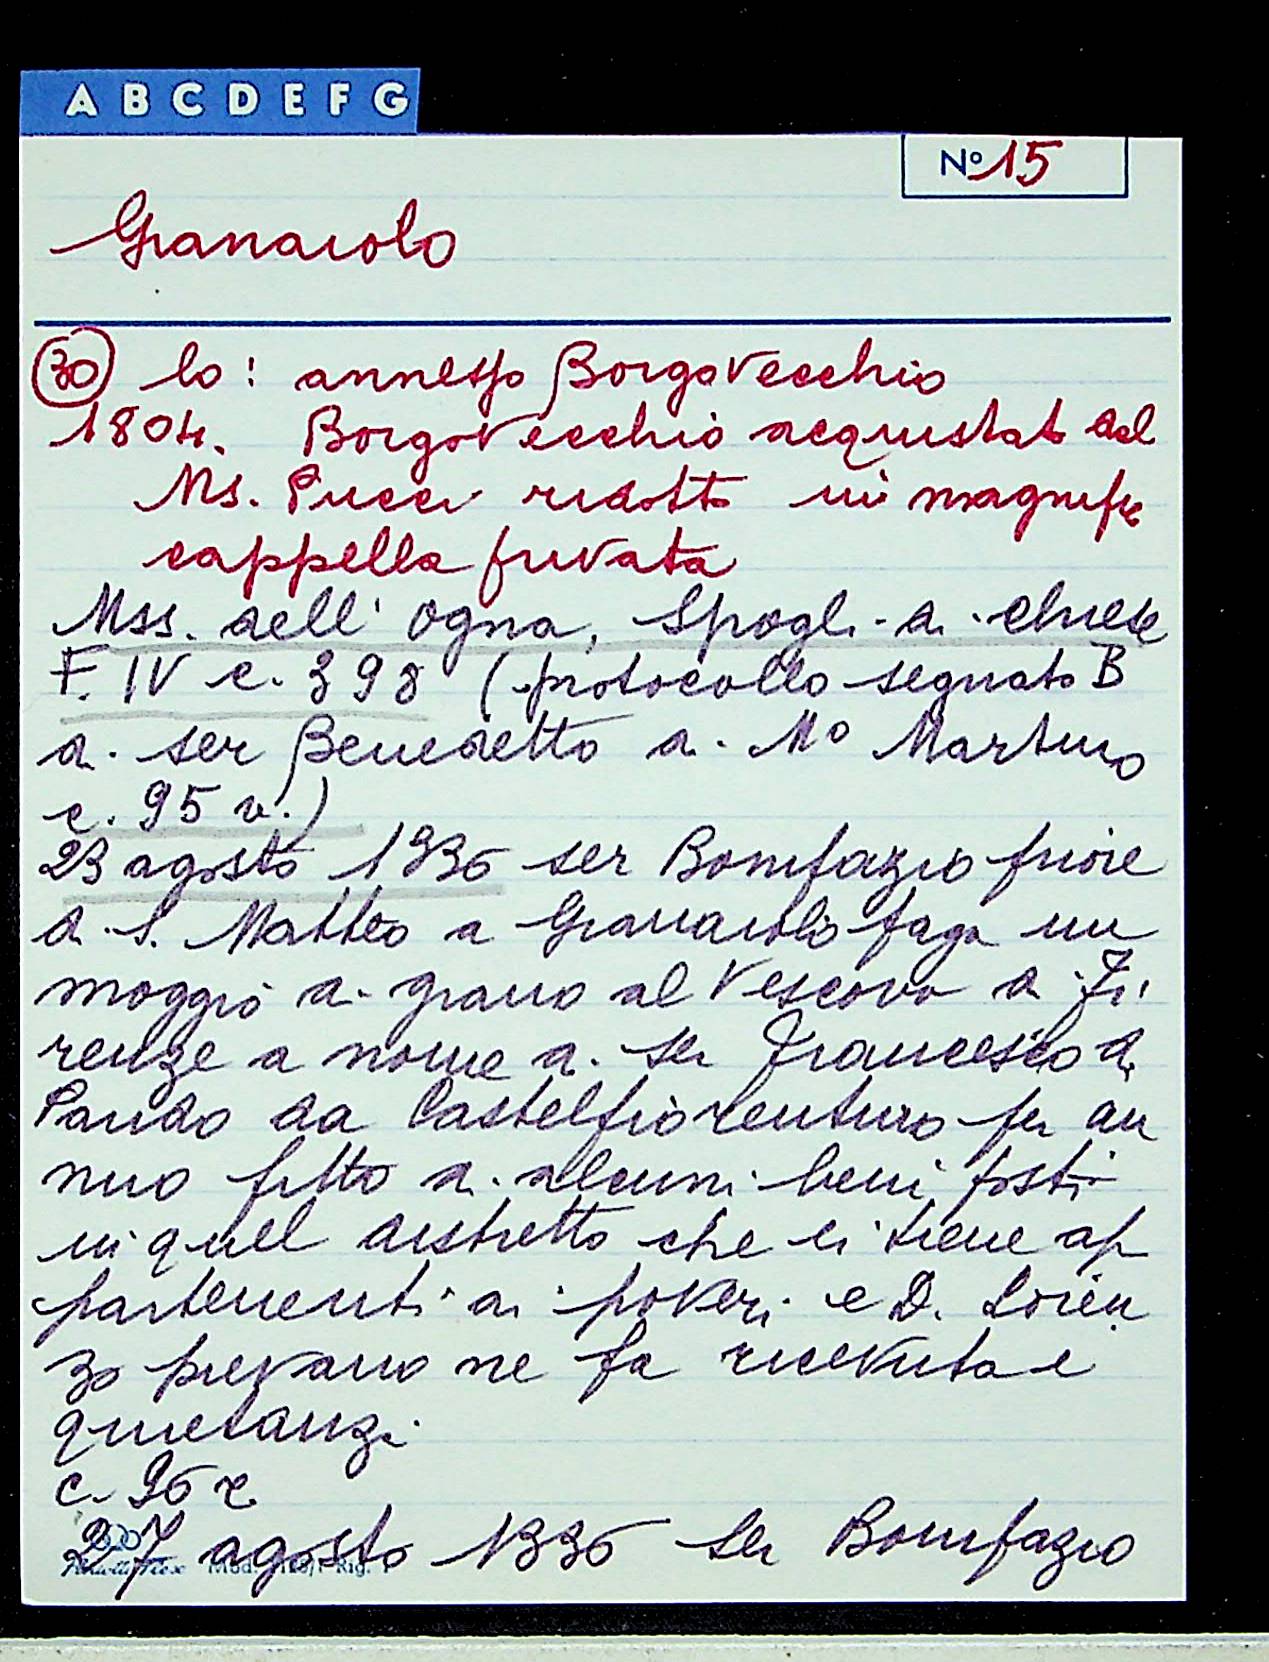 A B C D E F G
N° 15
Granaiolo
30 lo: annesso Borgovecchio
1804. Borgovecchio acquistat dal
Ms. Pucci ridotto in magnif
cappella privata
Mss. dell' Ogna, Spogli di chiese
F. IV c. 398 (protocollo segnato B
di ser Benedetto di M° Martino
c. 95 v.)
23 agosto 1336 ser Bonifazio priore
di S. Matteo a Granaiolo paga un
moggio di grano al Vescovo di Fi
renze a nome di ser Francesco di
Pando da Castelfiorentino per an
nuo fitto di alcuni beni posti
in quel distretto che ei tiene ap
partenenti ai poveri e D. Loren
zo pievano ne fa ricevuta e
quietanza
c. 96 r.
27 agosto 1336 ser Bonifazio